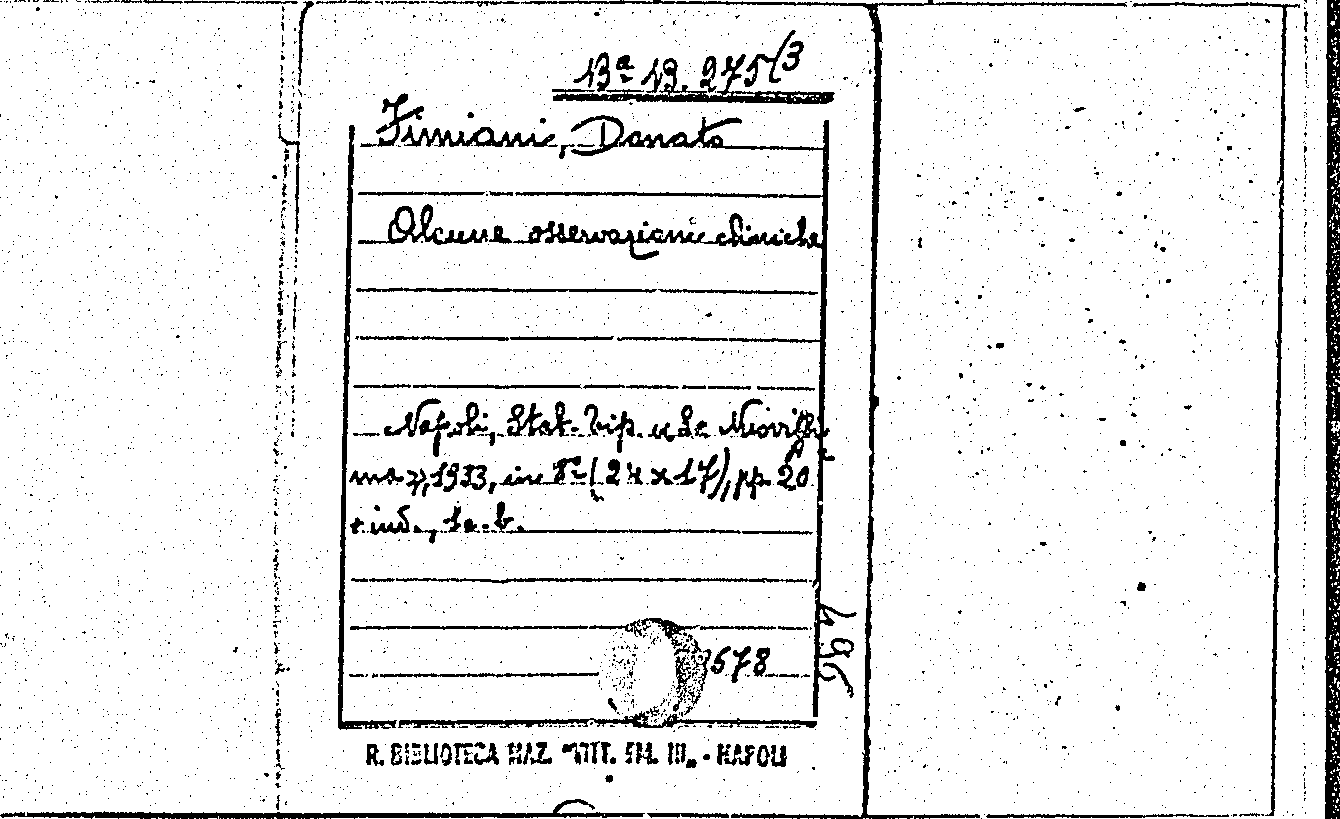 13ª 13. 275(3
Fimiani, Donato
Alcune osservazioni cliniche
Napoli, Stab. Tip. « La Nuovissi
ma », 1933, in 8º (24 x 17), pp. 20
+ ind., s. b.
3578
496
R. BIBLIOTECA NAZ. "VITT. EM. III„ - NAPOLI